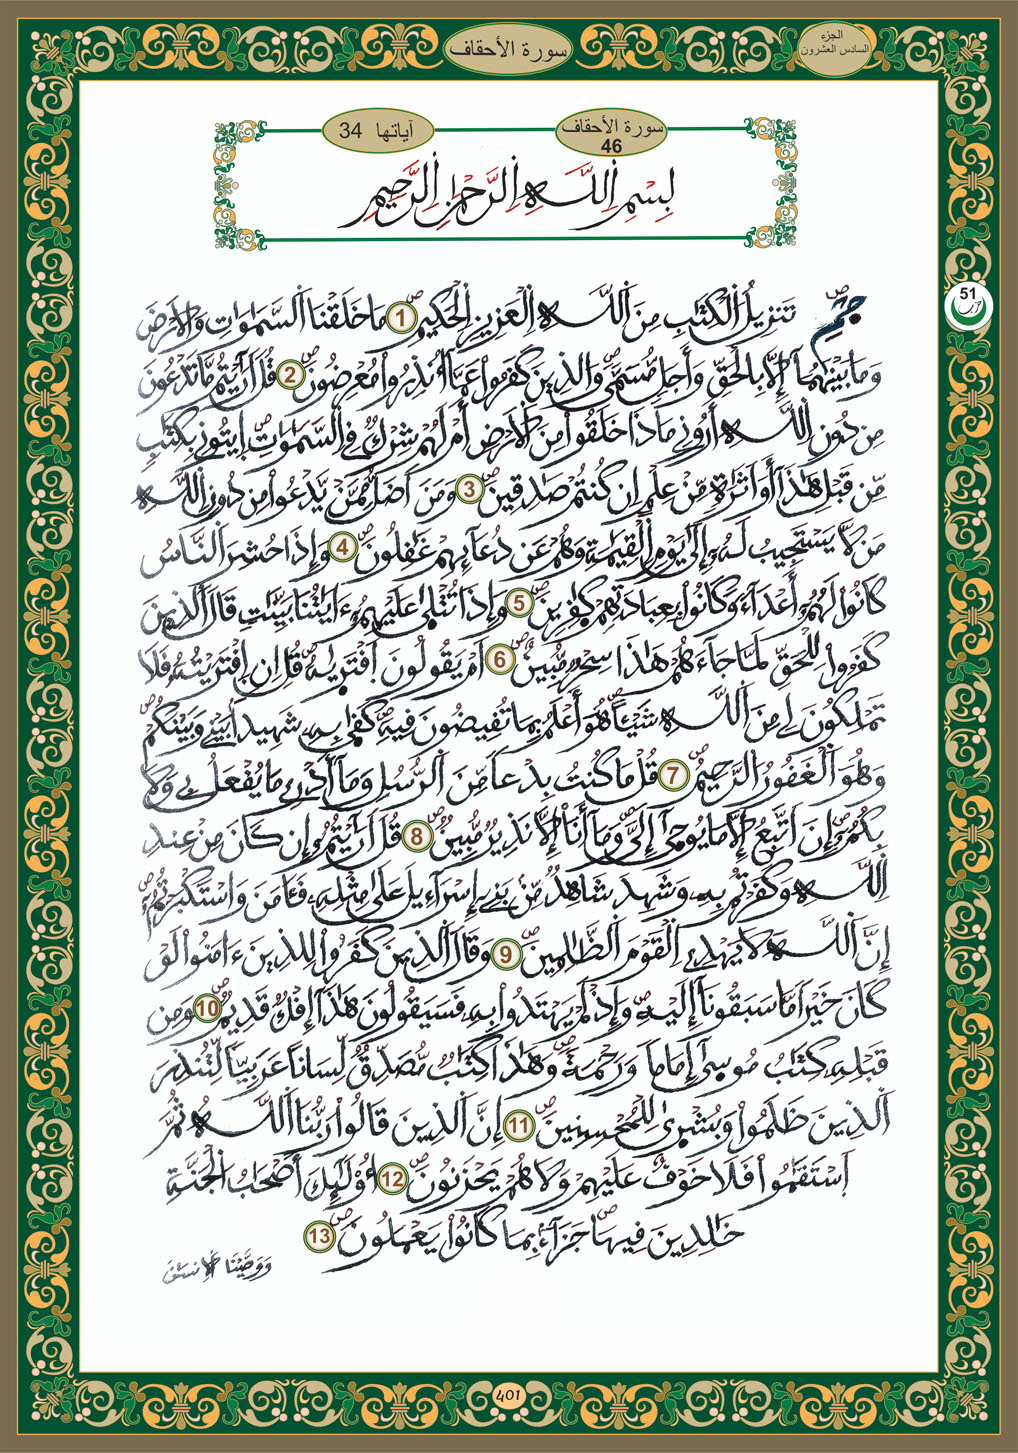 سورة الأحقاف
الجزء
السادس العشرون
سورة الأحقاف
46
آياتها 34
بِسْمِ اِللَّهِ اِلرَّحْمَٰنِ اِلرَّحِيمِ
51
حزب
جمٓ تَنزِيلُ اُلْكِتَٰبِ مِنَ اَللَّهِ اِلْعَزِيزِ اِلْحَكِيمِ 1 مَا خَلَقْنَا اَلسَّمَٰوَٰتِ وَالَارْضَ
وَمَا بَيْنَهُمَآ إِلَّا بِالْحَقِّ وَأَجَلٖ مُّسَمّيٗ وَالذِينَ كَفَرُواْ عَمَّآ أُنذِرُواْ مُعْرِضُونَ 2 قُلَ اَرَٰٓيْتُم مَّا تَدْعُونَ
مِن دُونِ اِللَّهِ أَرُونِے مَاذَا خَلَقُواْ مِنَ اَلَارْضِ أَمْ لَهُمْ شِرْكٞ فِے اِلسَّمَٰوَٰتِ اِيتُونِے بِكِتَٰبٖ
مِّن قَبْلِ هَٰذَآ أَوَ اَثَٰرَةٖ مِّنْ عِلْمٍ اِن كُنتُمْ صَٰدِقِينَ 3 وَمَنَ اَضَلُّ مِمَّنْ يَّدْعُواْ مِن دُونِ اِللَّهِ
مَن لَّا يَسْتَجِيبُ لَهُۥٓ إِلَىٰ يَوْمِ اِلْقِيَٰمَةِ وَهُمْ عَن دُعَآئِهِمْ غَٰفِلُونَ 4 وَإِذَا حُشِرَ اَلنَّاسُ
كَانُواْ لَهُمُۥٓ أَعْدَآءٗ وَكَانُواْ بِعِبَادَتِهِمْ كَٰفِرِينَ 5 وَإِذَا تُتْلَىٰ عَلَيْهِمُۥٓ ءَايَٰتُنَا بَيِّنَٰتٖ قَالَ اَلذِينَ
كَفَرُواْ لِلْحَقِّ لَمَّا جَآءَهُمْ هَٰذَا سِحْرٞ مُّبِينٌ 6 اَمْ يَقُولُونَ اَفْتَرَىٰهُ قُلِ اِنِ اِفْتَرَيْتُهُۥ فَلَا
تَمْلِكُونَ لِے مِنَ اَللَّهِ شَيْـٔاً هُوَ أَعْلَمُ بِمَا تُفِيضُونَ فِيهِ كَفَىٰ بِهِۦ شَهِيداَۢ بَيْنِے وَبَيْنَكُمْ
وَهُوَ اَلْغَفُورُ اُلرَّحِيمُ 7 قُلْ مَا كُنتُ بِدْعاٗ مِّنَ اَلرُّسُلِ وَمَآ أَدْرِے مَا يُفْعَلُ بِے وَلَا
بِكُمُۥٓ إِنَ اَتَّبِعُ إِلَّا مَا يُوحَىٰٓ إِلَيَّ وَمَآ أَنَا إِلَّا نَذِيرٞ مُّبِينٞ 8 قُلَ اَرَٰٓيْتُمُۥٓ إِن كَانَ مِنْ عِندِ
اِللَّهِ وَكَفَرْتُم بِهِۦ وَشَهِدَ شَاهِدٞ مِّنۢ بَنِےٓ إِسْرَآءِيلَ عَلَىٰ مِثْلِهِۦ فَـَٔامَنَ وَاسْتَكْبَرْتُمُۥٓ
إِنَّ اَللَّهَ لَا يَهْدِے اِلْقَوْمَ اَلظَّٰلِمِينَ 9 وَقَالَ اَلذِينَ كَفَرُواْ لِلذِينَ ءَامَنُواْ لَوْ
كَانَ خَيْراٗ مَّا سَبَقُونَآ إِلَيْهِ وَإِذْ لَمْ يَهْتَدُواْ بِهِۦ فَسَيَقُولُونَ هَٰذَآ إِفْكٞ قَدِيمٞ 10 وَمِن
قَبْلِهِۦ كِتَٰبُ مُوسَىٰٓ إِمَاماٗ وَرَحْمَةٗ وَهَٰذَا كِتَٰبٞ مُّصَدِّقٞ لِّسَاناً عَرَبِيّاٗ لِّتُنذِرَ
اَلذِينَ ظَلَمُواْ وَبُشْرَىٰ لِلْمُحْسِنِينَ 11 إِنَّ اَلذِينَ قَالُواْ رَبُّنَا اَللَّهُ ثُمَّ
اَسْتَقَٰمُواْ فَلَا خَوْفٌ عَلَيْهِمْ وَلَا هُمْ يَحْزَنُونَ 12 أُوْلَٰٓئِكَ أَصْحَٰبُ اُلْجَنَّةِ
خَٰلِدِينَ فِيهَا جَزَآءَۢ بِمَا كَانُواْ يَعْمَلُونَ 13
وَوَصَّيْنَا اَلِانسَٰنَ
401